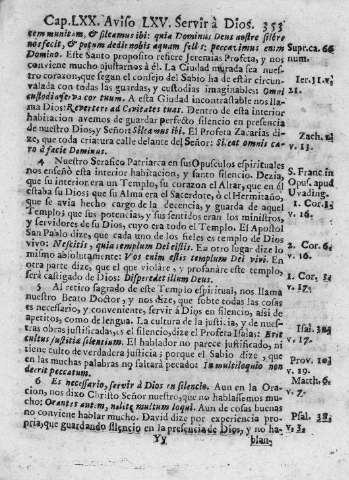 Cap. LXX. Aviso LXV. Servir à Dios. 353
tem munitam, & sileamus ibi: quia Dominus Deus noster silere
nos fecit, & potum dedit nobis aquam fellis; peccavimus enim
Domino. Este Santo proposito refiere Jeremias Profeta, y nos
conviene mucho ajustarnos à èl. La Ciudad murada sea nuestro
corazon, que segun el consejo del Sabio ha de estàr circunvalada
con todas las guardas, y custodias imaginables: Omni
custodia serva cor tuum. A esta Ciudad incontrastable nos llama
Dios: Revertere ad Civitates tuas. Dentro de esta interior
habitacion avemos de guardar perfecto silencio en presencia
de nuestro Dios, y Señor: Sileamus ibi. El Profeta Zacarias dize,
que toda criatura calle delante del Señor: Sileat omnis caro
à facie Dominus.
4 Nuestro Serafico Patriarca en sus Opusculos espirituales
nos enseñò esta interior habitacion, y santo silencio. Dezia,
que su interior era un Templo, su corazon el Altar, que en èl
estaba su Dios: que su Alma era el Sacerdote, ò el Hermitaño,
que se avia hecho cargo de la decencia, y guarda de aquel
Templo: que sus potencias, y sus sentidos eran los ministros,
y servidores de su Dios, cuyo era todo el Templo. El Apostol
San Pablo dize, que cada uno de los fieles es templo de Dios
vivo: Nescitis, quia templum Dei estis. En otro lugar dize lo
mismo absolutamente: Vos enim estis templum Dei vivi. En
otra parte dize, que el que violàre, y profanàre este templo,
serà castigado de Dios: Disperdet illum Deus.
5 Al retiro sagrado de este Templo espiritual, nos llama
nuestro Beato Doctor, y nos dize, que sobre todas las cosas
es necesario, y conveniente, servir à Dios en silencio, assi de
apetitos, como de lengua. La cultura de la justicia, y de nuestras
obras justificadas, es el silencio, dize el Profeta Isaias: Erit
cultus justitiæ silentium. El hablador no parece justificado, ni
tiene culto de verdadera justicia; porque el Sabio dize, que
en las muchas palabras no faltarà pecado: In multiloquio non
deerit peccatum.
6 Es necessario, servir à Dios en silencio. Aun en la Oracion,
nos dixo Christo Señor nuestro, que no hablassemos mucho:
Orantes autem, nolite multum loqui. Aun de cosas buenas
no conviene hablar mucho. David dize por experiencia propria,
que guardando silencio en la presencia de Dios, y no ha-
Yy blan-
Supr. ca. 66.
num.
Ier. 31. v.
21.
Zach. 2.
v. 13.
S. Franc. in
Opus. apud
Uvading.
1. Cor. 3.
v. 16.
2. Cor. 6.
v. 16.
1. Cor. 3.
v. 17.
v. 17.
Prov. 10.
v. 19.
Matth. 6.
v. 7.
Psal. 38.
v. 3.